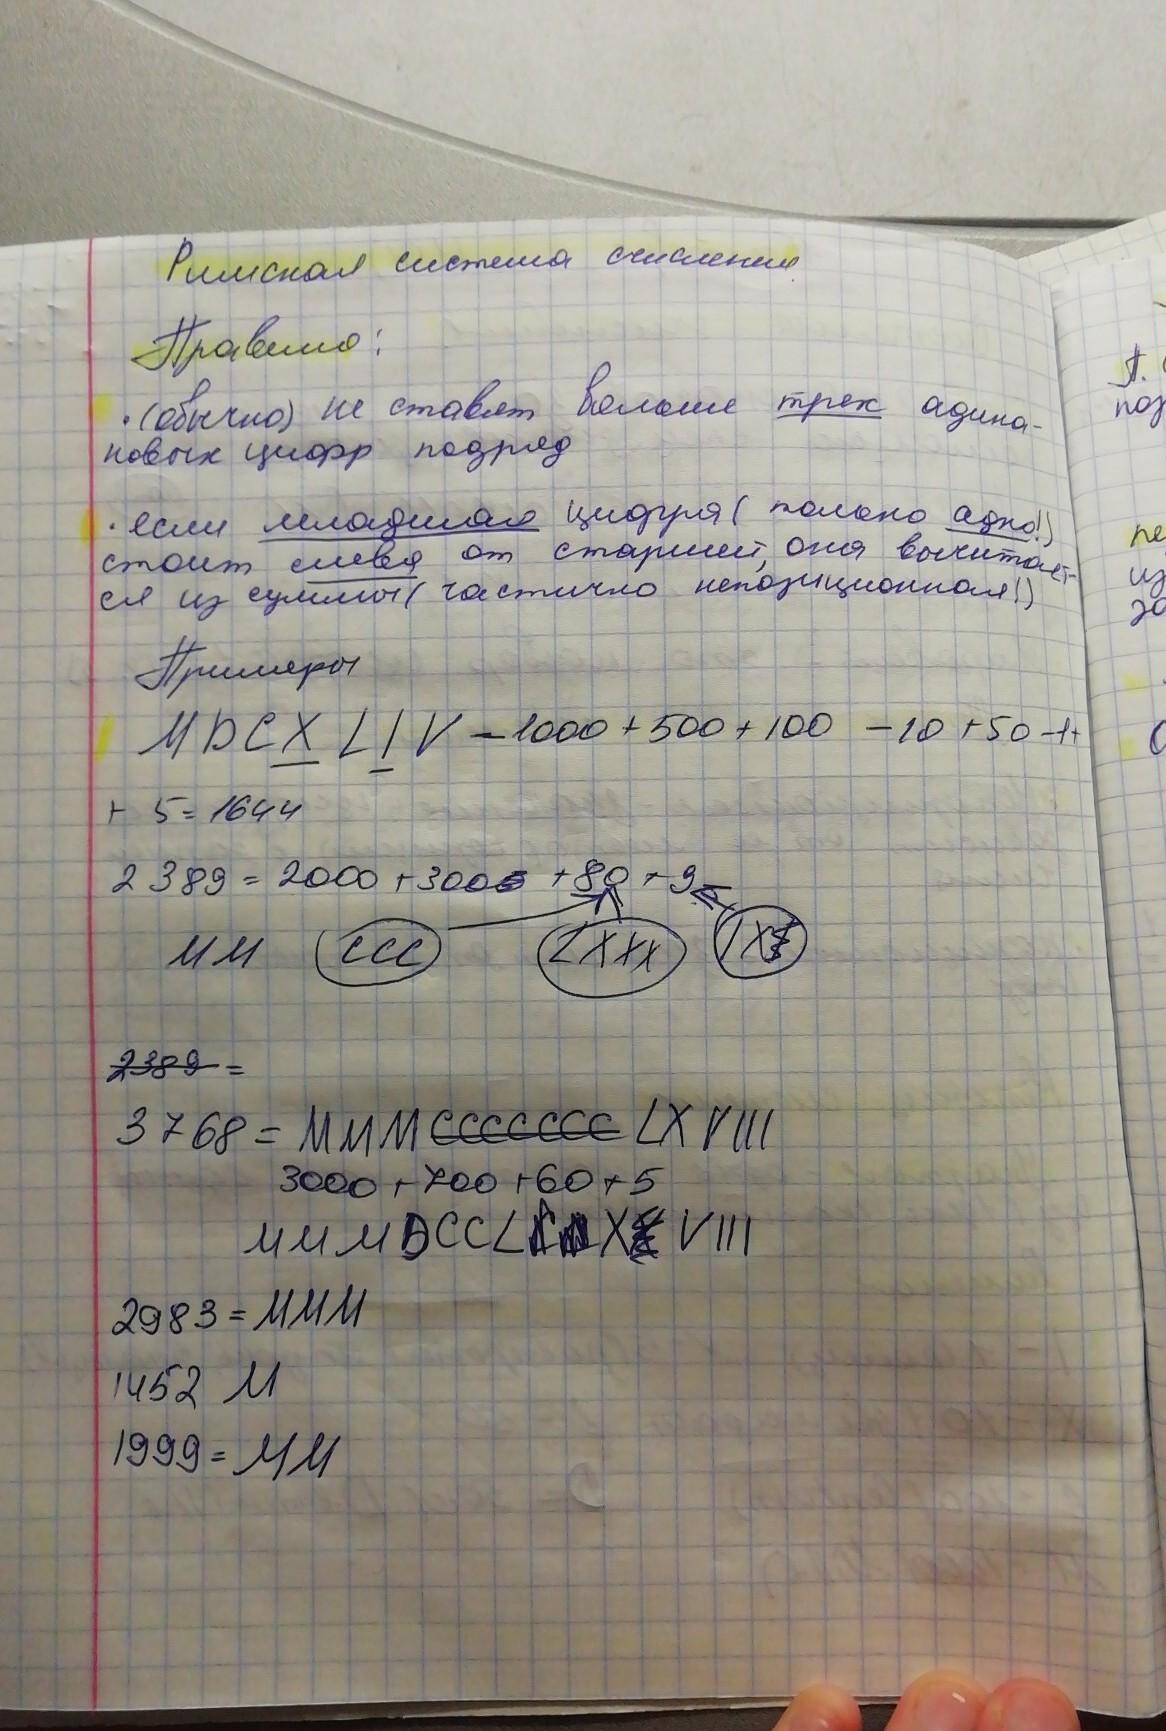 Римская система счисления
Правило:
• (обычно) не ставят больше трех адина-
ковых цифр подряд
• если младшая цифра (только одна!)
стоит слева от старшей, она вычитает-
ся из суммы (частично непозиционная!)
Примеры
MDCXLIV - 1000 + 500 + 100 - 10 + 50 - 1 +
+ 5 = 1644
2389 = 2000 + 300 + 80 + 9
MM CCC LXXX IX
2389 =
3768 = MMMCCCCCCC LXVIII
3000 + 700 + 60 + 5
MMMDCCL X VIII
2983 = MMM
1452 M
1999 = MM
П.
поз
пе
из
за